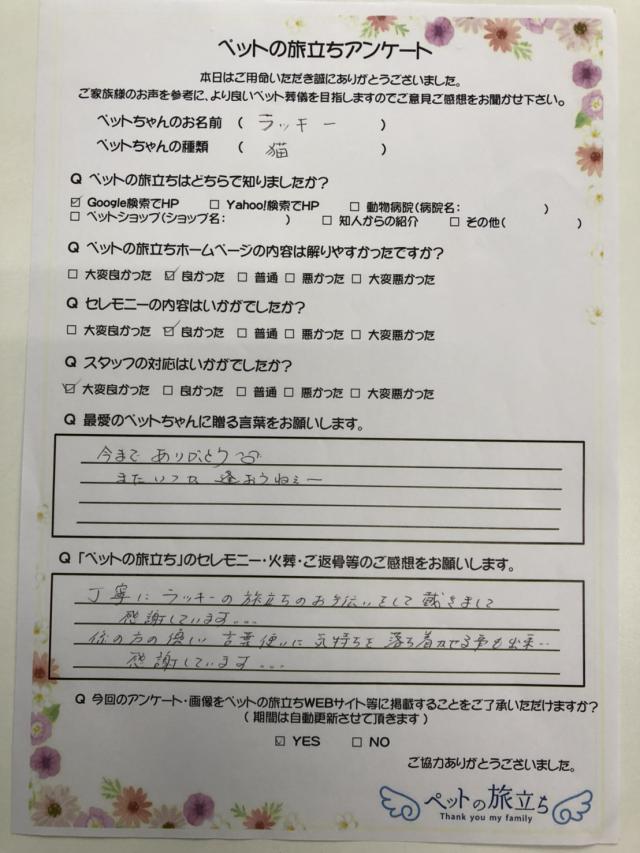 ペットの旅立ちアンケート
本日はご用命いただき誠にありがとうございました。
ご家族様のお声を参考に、より良いペット葬儀を目指しますのでご意見ご感想をお聞かせ下さい。
ペットちゃんのお名前 ( ラッキー )
ペットちゃんの種類 ( 猫 )
Q ペットの旅立ちはどちらで知りましたか?
☑ Google検索でHP □ Yahoo!検索でHP □ 動物病院(病院名: )
□ ペットショップ(ショップ名: ) □ 知人からの紹介 □ その他( )
Q ペットの旅立ちホームページの内容は解りやすかったですか?
□ 大変良かった ☑ 良かった □ 普通 □ 悪かった □ 大変悪かった
Q セレモニーの内容はいかがでしたか?
□ 大変良かった ☑ 良かった □ 普通 □ 悪かった □ 大変悪かった
Q スタッフの対応はいかがでしたか?
☑ 大変良かった □ 良かった □ 普通 □ 悪かった □ 大変悪かった
Q 最愛のペットちゃんに贈る言葉をお願いします。
今まで ありがとう
またいつか 逢おうねぇー
Q 「ペットの旅立ち」のセレモニー・火葬・ご返骨等のご感想をお願いします。
丁寧に ラッキーの 旅立ちの お手伝いをして 戴きまして
感謝しています...
係の方の優しい 言葉使いに 気持ちを 落ち着かせる事も出来..
感謝しています...
Q 今回のアンケート・画像をペットの旅立ちWEBサイト等に掲載することをご了承いただけますか?
( 期間は自動更新させて頂きます )
☑ YES □ NO
ご協力ありがとうございました。
ペットの旅立ち
Thank you my family